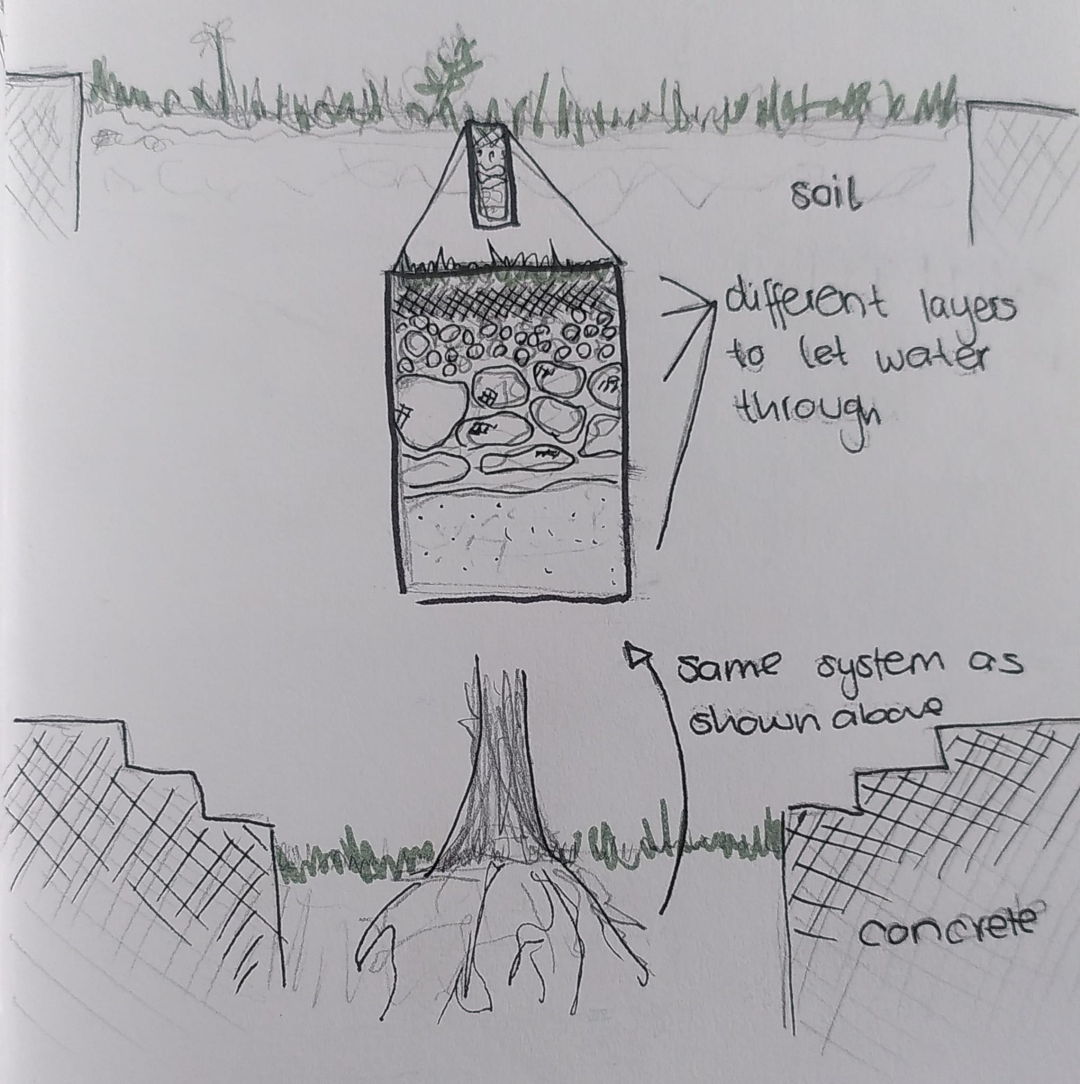 soil
different layers
to let water
through
same system as
shown above
concrete